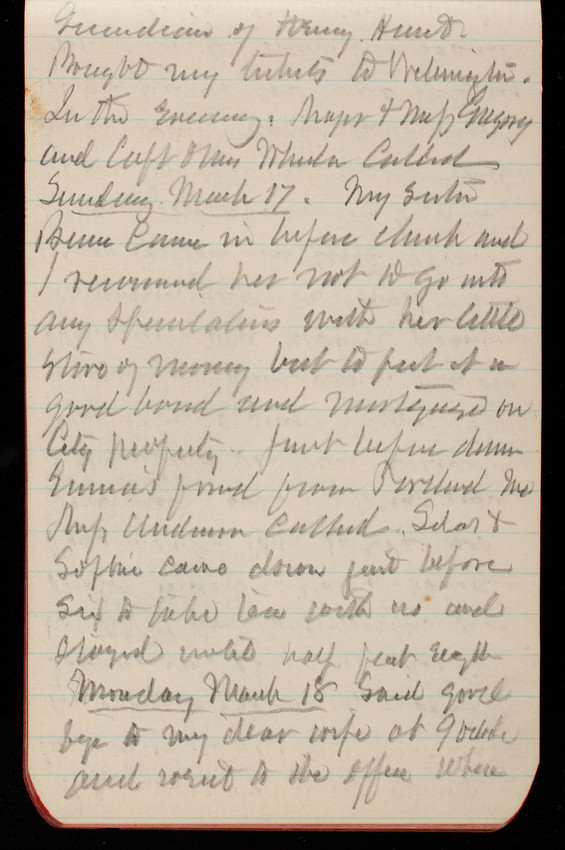 Guardian of Henry Hunt.
Bought my tickets to Wilmington.
In the Evening: Major & Mrs Gregory
and Capt & Mrs Wheeler Called
Sunday March 17. My Sister
came in before church and
I recommend her not to go into
any speculations with her little
store of money but to put it in
good bond and mortgage on
City property. Just before dinner
Emma's friend from Portland Me
Miss Anderson Called. Selas &
Sophie came down just before
six to take tea with us and
stayed until half past eight
Monday March 18 Said good
bye to my dear wife at 9 oclock
and went to the office where